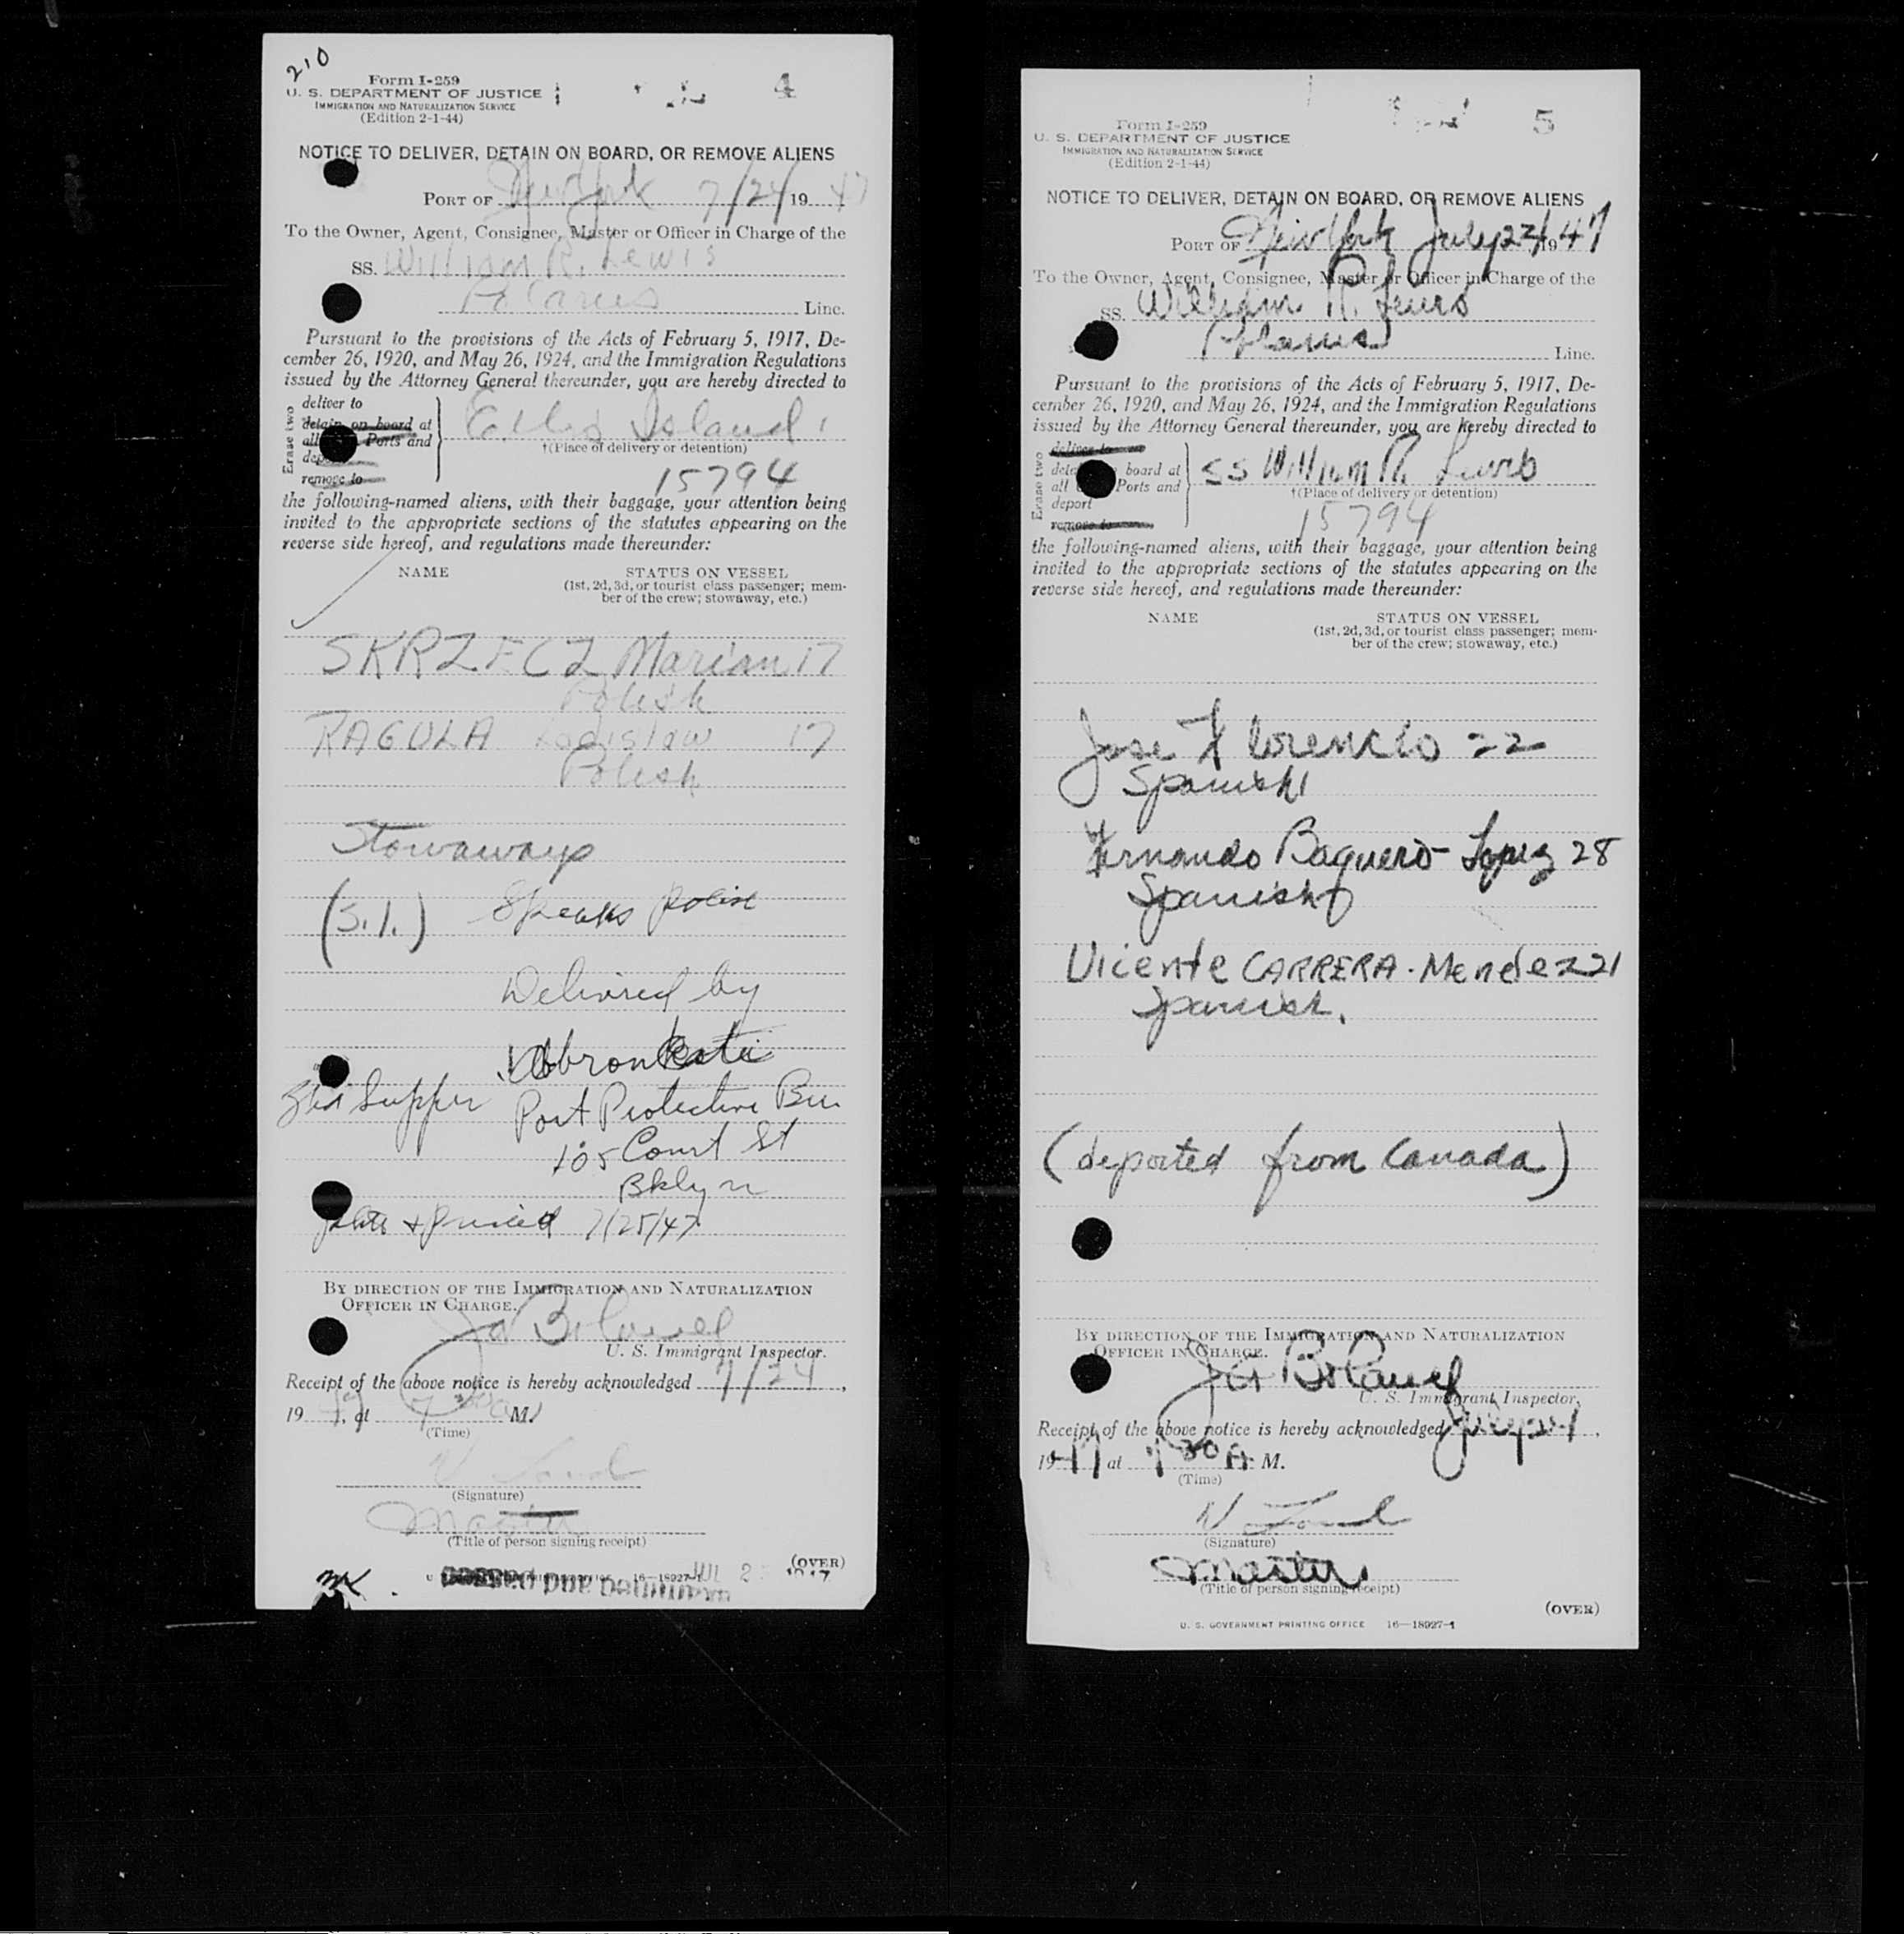 210
4
Form I-259
U. S. DEPARTMENT OF JUSTICE
IMMIGRATION AND NATURALIZATION SERVICE
(Edition 2-1-44)
NOTICE TO DELIVER, DETAIN ON BOARD, OR REMOVE ALIENS
PORT OF New York 7/24/19 47
To the Owner, Agent, Consignee, Master or Officer in Charge of the
SS. William R. Lewis
Polarus Line.
Pursuant to the provisions of the Acts of February 5, 1917, De-
cember 26, 1920, and May 26, 1924, and the Immigration Regulations
issued by the Attorney General thereunder, you are hereby directed to
Erase two
deliver to
detain on board at
all Ports and
remove to
Ellis Island
†(Place of delivery or detention)
15794
the following-named aliens, with their baggage, your attention being
invited to the appropriate sections of the statutes appearing on the
reverse side hereof, and regulations made thereunder:
NAME STATUS ON VESSEL
(1st, 2d, 3d, or tourist class passenger; mem-
ber of the crew; stowaway, etc.)
SKRZECZ Marian 17
Polish
RAGULA Ladislaw 17
Polish
Stowaways
(S.I.) Speaks Polish
Delivered by
Port Protective Bu
105 Court St
Bklyn
Supper
7/25/47
BY DIRECTION OF THE IMMIGRATION AND NATURALIZATION
OFFICER IN CHARGE.
U. S. Immigrant Inspector.
Receipt of the above notice is hereby acknowledged 7/24,
1947, at 7 30 A M.
(Time)
(Signature)
Master
(Title of person signing receipt)
(OVER)
16—18927-1
JUL 2
1947
5
Form I-259
U. S. DEPARTMENT OF JUSTICE
IMMIGRATION AND NATURALIZATION SERVICE
(Edition 2-1-44)
NOTICE TO DELIVER, DETAIN ON BOARD, OR REMOVE ALIENS
PORT OF New York July 24 1947
To the Owner, Agent, Consignee, Master or Officer in Charge of the
SS. William R. Lewis
Polarus Line.
Pursuant to the provisions of the Acts of February 5, 1917, De-
cember 26, 1920, and May 26, 1924, and the Immigration Regulations
issued by the Attorney General thereunder, you are hereby directed to
Erase two
deliver to
board at
all Ports and
deport
remove to
SS William R. Lewis
†(Place of delivery or detention)
15794
the following-named aliens, with their baggage, your attention being
invited to the appropriate sections of the statutes appearing on the
reverse side hereof, and regulations made thereunder:
NAME STATUS ON VESSEL
(1st, 2d, 3d, or tourist class passenger; mem-
ber of the crew; stowaway, etc.)
Jose Florencio 22
Spanish
Fernando Baquero-Lopez 28
Spanish
Vicente CARRERA-Mendez 21
Spanish.
(deported from Canada)
BY DIRECTION OF THE IMMIGRATION AND NATURALIZATION
OFFICER IN CHARGE.
U. S. Immigrant Inspector.
Receipt of the above notice is hereby acknowledged July 24,
1947 at 7 30 A. M.
(Time)
(Signature)
Master
(Title of person signing receipt)
(OVER)
U. S. GOVERNMENT PRINTING OFFICE 16—18927-1